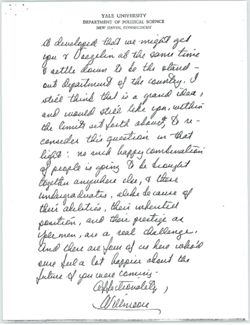 YALE UNIVERSITY
DEPARTMENT OF POLITICAL SCIENCE
NEW HAVEN, CONNECTICUT
is developed that we might get
you & Voegelin at the same time
& settle down to be the stand-
out department of the country. I
still think that is a grand idea,
and would still like you, within
the limits set forth above, to re-
consider this question in that
light: no such happy combination
of people is going to be brought
together anywhere else, & these
undergraduates, alike because of
their abilities, their inherited
position, and their prestige as
Yale men, are a real challenge.
And there are four of us here who'd
sure feel a lot happier about the
future if you were coming.
Affectionately,
Willmoore